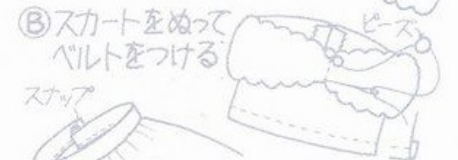 Ⓑスカートをぬって
ベルトをつける
ビーズ
スナップ